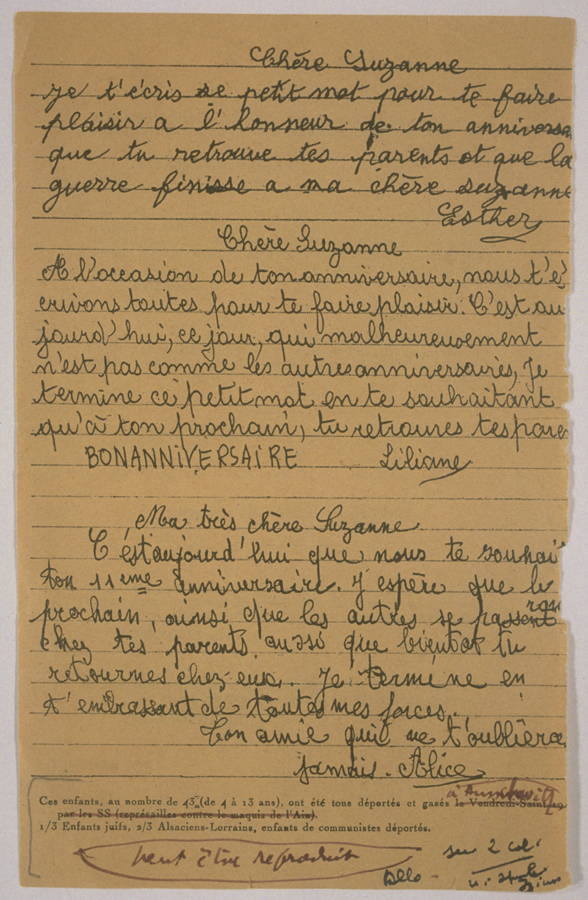 Chère Suzanne
Je t'écris se petit mot pour te faire
plaisir a l'honneur de ton anniversa
que tu retrouve tes parents et que la
guerre finisse a ma chère suzanne
Esther
Chère Suzanne
A l'occasion de ton anniversaire, nous t'é
crivons toutes pour te faire plaisir. C'est au
jourd'hui, ce jour, qui malheureusement
n'est pas comme les autres anniversaires, Je
termine ce petit mot en te souhaitant
qu'à ton prochain, tu retrouves tes paren
BON ANNIVERSAIRE Liliane
Ma très chère Suzanne
C'est aujourd'hui que nous te souhai
ton 11ème anniversaire. J'espère que le
prochain, ainsi que les autres se passent
chez tes parents, aussi que bientot tu
retournes chez eux. Je termine en
t'embrassant de toutes mes forces.
Ton amie qui ne t'oubliera
jamais. Alice
Ces enfants, au nombre de 43 (de 4 à 13 ans), ont été tous déportés et gazés le Vendredi-Saint
par les SS (représailles contre le maquis de l'Ain).
1/3 Enfants juifs, 2/3 Alsaciens-Lorrains, enfants de communistes déportés.
peut être reproduit
sur 2 col.